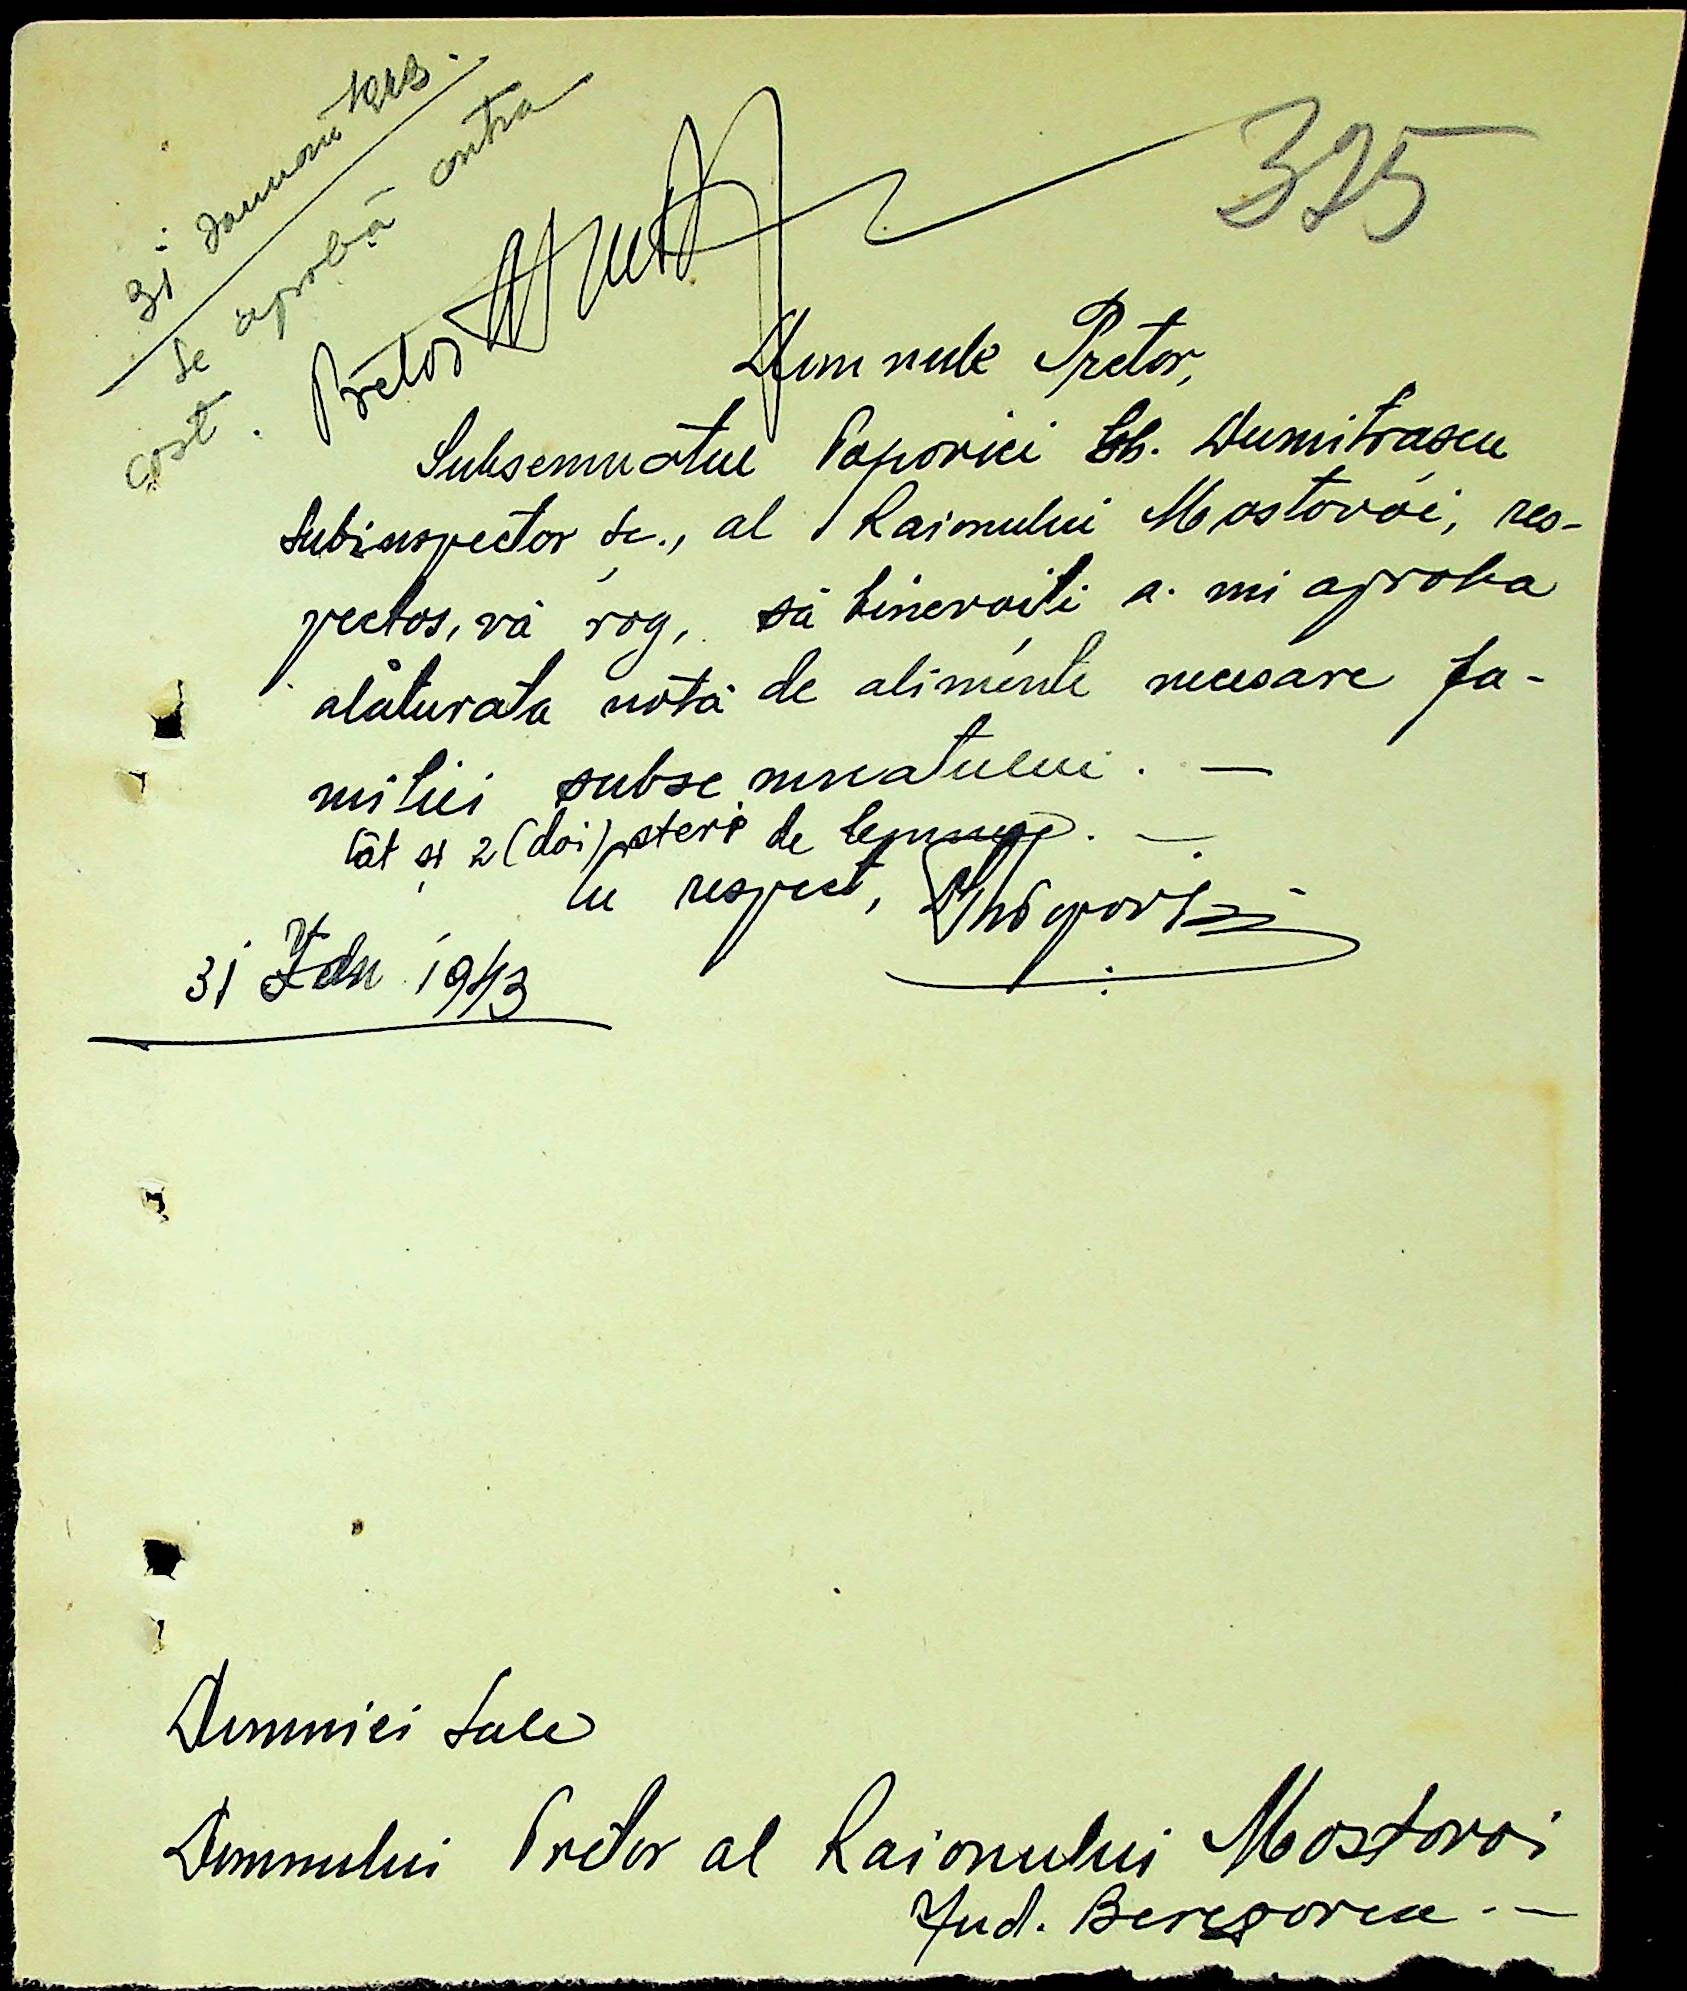 31 Ianuarie 1943.
se aprobă contra
cost.
Pretor
325
Domnule Pretor,
Subsemnatul Popovici Gh. Dumitrascu
Subinspector sc., al Raionului Mostovoi, res-
pectos, vă rog, să binevoiti a-mi aproba
alăturata notă de alimente necesare fa-
miliei subsemnatului. —
Cât și 2 (doi) steri de lemne. —
Cu respect,
31 Ian 1943
Domniei Sale
Domnului Pretor al Raionului Mostovoi
Jud. Beregovca. —